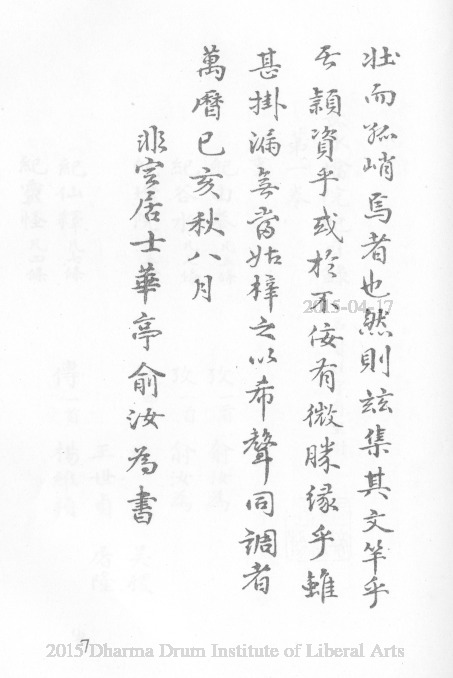 壯而孤峭焉者也然則茲集其文竿乎
吾穎資乎或於不佞有微勝緣乎雖
甚掛漏無當姑梓之以希聲同調者
萬曆已亥秋八月
非宮居士華亭俞汝為書
2015-04-17
7
2015 Dharma Drum Institute of Liberal Arts